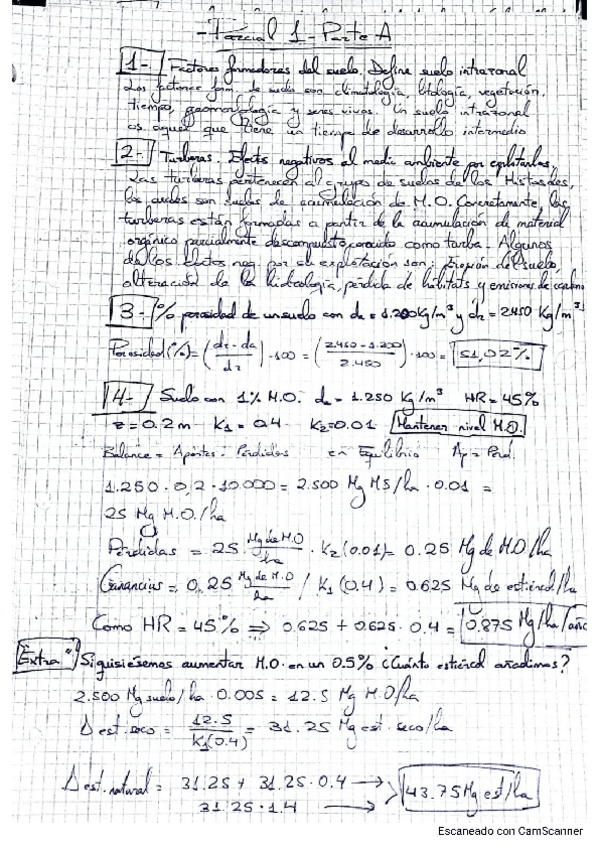 - Parcial 1 - Parte A
1- Factores formadores del suelo. Define suelo intrazonal
Los factores form. de suelo son climatología, litología, vegetación,
tiempo, geomorfología y seres vivos. Un suelo intrazonal
es aquel que tiene un tiempo de desarrollo intermedio
2- Turberas. Efectos negativos al medio ambiente por explotarlas.
Las turberas pertenecen al grupo de suelos de los Histosoles,
los cuales son suelos de acumulación de M.O. Concretamente, las
turberas están formadas a partir de la acumulación de material
orgánico parcialmente descompuesto, conocido como turba. Algunos
de los efectos neg. por su explotación son: Erosión del suelo,
alteración de la hidrología, pérdida de hábitats y emisiones de carbono
3- % porosidad de un suelo con da = 1.200 Kg/m³ y dr = 2450 Kg/m³
Porosidad (%) = (dr - da / dr) · 100 = (2.450 - 1.200 / 2.450) · 100 = 51,02%
4- Suelo con 1% M.O. da = 1.250 Kg/m³ HR = 45%
z = 0.2 m K1 = 0.4 K2 = 0.01 Mantener nivel M.O.
Balance = Aportes - Pérdidas en Equilibrio Ap = Perd.
1.250 · 0,2 · 10.000 = 2.500 Mg MS/ha · 0.01 =
25 Mg M.O./ha
Pérdidas = 25 Mg de M.O/ha · K2 (0.01) = 0.25 Mg de M.O/ha
Ganancias = 0,25 Mg de M.O/ha / K1 (0.4) = 0.625 Mg de estiércol/ha
Como HR = 45% ⇒ 0.625 + 0.625 · 0.4 = 0,875 Mg/ha/año
Extra " Si quisiésemos aumentar M.O. en un 0.5% ¿Cuánto estiércol añadimos?
2.500 Mg suelo/ha · 0.005 = 12.5 Mg M.O/ha
Δ est. seco = 12.5 / K1(0.4) = 31.25 Mg est. seco/ha
Δ est. natural = 31.25 + 31.25 · 0.4 → 43.75 Mg est/ha
31.25 · 1.4 →
Escaneado con CamScanner